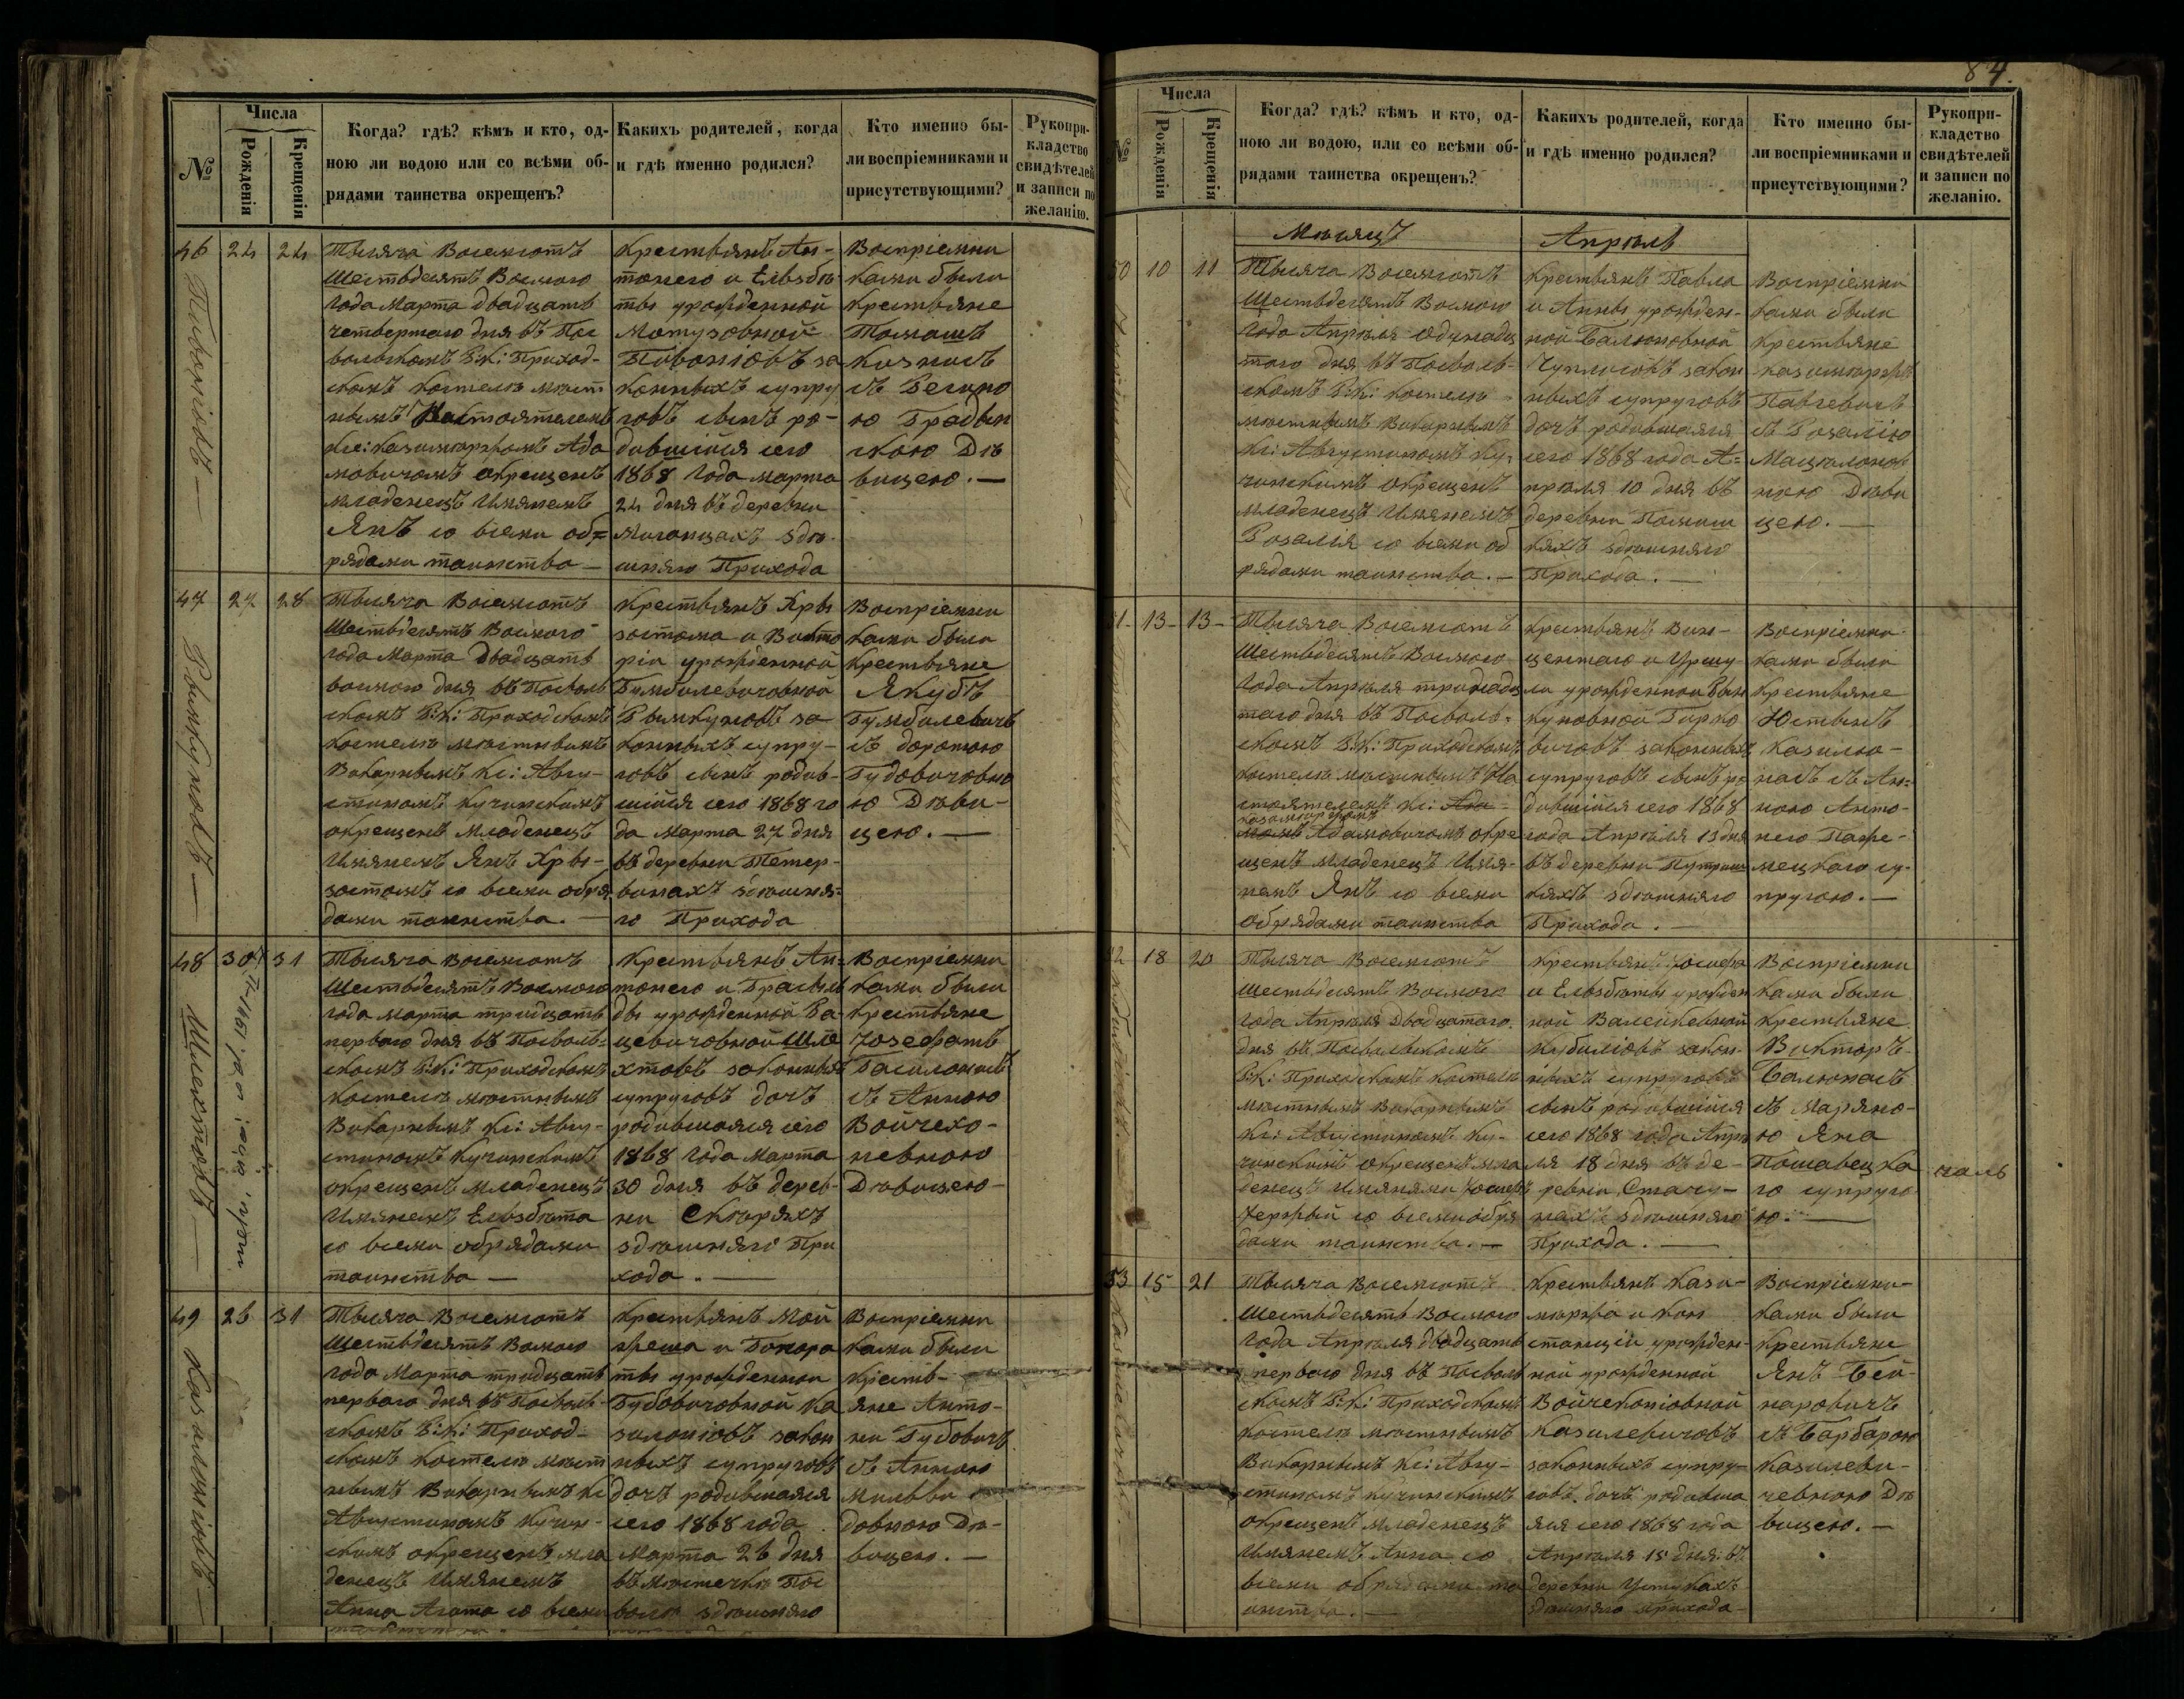 84.
№
Числа
Рожденія
Крещенія
Когда? гдѣ? кѣмъ и кто, од-
ною ли водою или со всѣми об-
рядами таинства окрещенъ?
Какихъ родителей, когда
и гдѣ именно родился?
Кто именно бы-
ли воспріемниками и
присутствующими?
Рукопри-
кладство
свидѣтелей
и записи по
желанію.
46
24
24
Тысяча Восемсотъ
Шестьдесятъ Восмого
года Марта двадцать
четвертаго дня въ Пос
вольскомъ Р:К: Приход-
скомъ костелѣ мѣст
нымъ Настоятелемъ
Кс: Казимѣржомъ Ада
мовичомъ окрещенъ
младенецъ Имянемъ
Янъ со всеми об=
рядами таинства —
Крестьянъ Ан-
тонего и Ельзбѣ
ты урожденной
Мотузовной
Пивоніовъ за
конныхъ супру
говъ сынъ ро-
дившійся сего
1868 Года марта
24 дня въ деревни
здѣ-
шняго Прихода
Воспріемни
ками были
Крестьяне
Томашъ
съ Регино
ю
скою Дѣ
вицею. —
47
27
28
Рымкуновъ —
Тысяча Восемсотъ
Шестьдесятъ Восмого
года Марта Двадцать
восмого дня въ Посволь
скомъ Р:К: Приходскомъ
костелѣ мѣстнымъ
Викарнымъ Кс: Авгу-
стиномъ Кучинскимъ
окрещенъ Младенецъ
Имянемъ Янъ Хры-
зостомъ со всеми обря
дами таинства. —
Крестьянъ Хры
зостома и Викто
ріи урожденной
Гумбилевичовной
Рымкуновъ за
конныхъ супру-
говъ сынъ родив-
шійся сего 1868 го
да Марта 27 дня
въ деревни Тетер-
винахъ здѣшня-
го Прихода
Воспріемни
ками были
Крестьяне
Якубъ
Гумбилевичъ
съ доротою
Гудовичовно
ю Дѣви-
цею. —
48
30
31
Шлехтовъ —
Тысяча восемсотъ
Шестьдесятъ Восмого
года марта тридцать
первого дня въ Посволь=
скомъ Р:К: Приходскомъ
Костелѣ мѣстнымъ
Викарнымъ Кс: Авгу-
стиномъ Кучинскимъ
окрещенъ младенецъ
Имянемъ Ельзбѣта
со всеми обрядами
таинства —
Крестьянъ Ан=
тонего и Грасиль
ды урожденной Ра-
цевичовной Шле
хтовъ законныхъ
супруговъ дочъ
родившаяся сего
1868 Года Марта
30 дня въ дерев-
ни Скѣряхъ
здѣшняго При
хода. —
Воспріемни
ками были
Крестьяне
Іозефатъ
съ Анною
Войчехо-
невною
Дѣвицею —
49
26
31
Казилоніовъ —
Тысяча Восемсотъ
Шестьдесятъ Восмого
года Марта тридцать
первого дня въ Посволь-
скомъ Р:К: Приход-
скомъ Костелѣ мѣст
нымъ Викарнымъ Кс
Августиномъ Кучин-
скимъ окрещенъ мла
денецъ Имянемъ
Анна Агата со всеми
Крестьянъ Мой
жеша и Гонора
ты урожденной
Гудовичовной Ка
зилоніовъ закон
ныхъ супруговъ
дочъ родившаяся
сего 1868 года
Марта 26 дня
въ мѣстечкѣ Пос
волѣ здѣшняго
Воспріемни
ками были
Кресть-
яне Анто-
ни Гудовичъ
съ Анною
довною Дѣ-
вицею. —
№
Числа
Рожденія
Крещенія
Когда? гдѣ? кѣмъ и кто, од-
ною ли водою, или со всѣми об-
рядами таинства окрещенъ?
Какихъ родителей, когда
и гдѣ именно родился?
Кто именно бы-
ли воспріемниками и
присутствующими?
Рукопри-
кладство
свидѣтелей
и записи по
желанію.
Мѣсяцъ
Апрѣль
50
10
11
Тысяча Восемсотъ
Шестьдесятъ Восмого
Года Апрѣля одинадц
того дня въ Посволь-
скомъ Р:К: Костелѣ
мѣстнымъ Викарнымъ
Кс: Августиномъ Ку-
чинскимъ Окрещенъ
младенецъ Имянемъ
Розалія со всеми об
рядами таинства. —
Крестьянъ Павла
и Анны урожден-
ной Балюновной
закон
ныхъ супруговъ
дочъ родившаяся
сего 1868 года А=
прѣля 10 дня въ
деревни
кяхъ здѣшняго
Прихода. —
Воспріемни
ками были
Крестьяне
Казимѣржъ
съ Розалію
Дѣви
цею. —
51-
13-
13-
Тысяча Восемсотъ
Шестьдесятъ Восмого
Года Апрѣля тринадц
таго дня въ Посволь-
скомъ Р:К: Приходскомъ
Костелѣ мѣстнымъ На
стоятелемъ Кс:
Казимѣржомъ
Адамовичомъ окре
щенъ младенецъ Имя-
немъ Янъ со всеми
обрядами таинства
Крестьянъ Вин-
центаго и Уршу-
ли урожденной Рым
куновной
вичовъ законныхъ
супруговъ сынъ ро
дившійся сего 1868
года Апрѣля 13 дня
въ деревни
кяхъ здѣшняго
Прихода. —
Воспріемни
ками были
Крестьяне
Юстынъ
съ Ан=
ною Анто-
него
су-
пругою. —
52
18
20
Тысяча Восемсотъ
Шестьдесятъ Восмого
Года Апрѣля Двадцатого
дня въ Посвольскомъ
Р:К: Приходскомъ Костелѣ
мѣстнымъ Викарнымъ
Кс: Августиномъ Ку-
чинскимъ окрещенъ мла
денецъ Имянами Іосифъ
Іержый со всеми обря
дами таинства. —
Крестьянъ Іосифа
и Ельзбѣты урожден
ной
Кубиліовъ закон-
ныхъ супруговъ
сынъ родившійся
сего 1868 года Апрѣ
ля 18 дня въ де-
ревни Стачу-
нахъ здѣшняго
Прихода. —
Воспріемни
ками были
Крестьяне
Викторъ
Балюнасъ
съ Маряно-
ю Яна
го супруго
ю. —
53
15
21
Тысяча Восемсотъ
Шестьдесятъ Восмого
Года Апрѣля двадцать
первого дня въ Посволь
скомъ Р:К: Приходскомъ
Костелѣ мѣстнымъ
Викарнымъ Кс: Авгу-
стиномъ Кучинскимъ
окрещенъ Младенецъ
Имянемъ Анна со
всеми обрядами та
инства. —
Крестьянъ Кази-
мѣржа и Кон
станціи урожден-
ной урожденной
Войчеконіовной
Казилевичовъ
законныхъ супру-
говъ дочъ родивша
яся сего 1868 года
Апрѣля 15 дня въ
деревни Устукахъ
здѣшняго прихода —
Воспріемни-
ками были
Крестьяне
Янъ Бей-
наровичъ
съ Барбарою
Казилеви-
чевною Дѣ
вицею. —